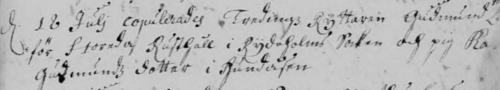 d. 18 Julij copulerades Tredings Ryttaren Gudmund
för Storedaf Rusthåll i Rydaholms Sokn och pig Ka
Gudmunds dotter i Hundåsen